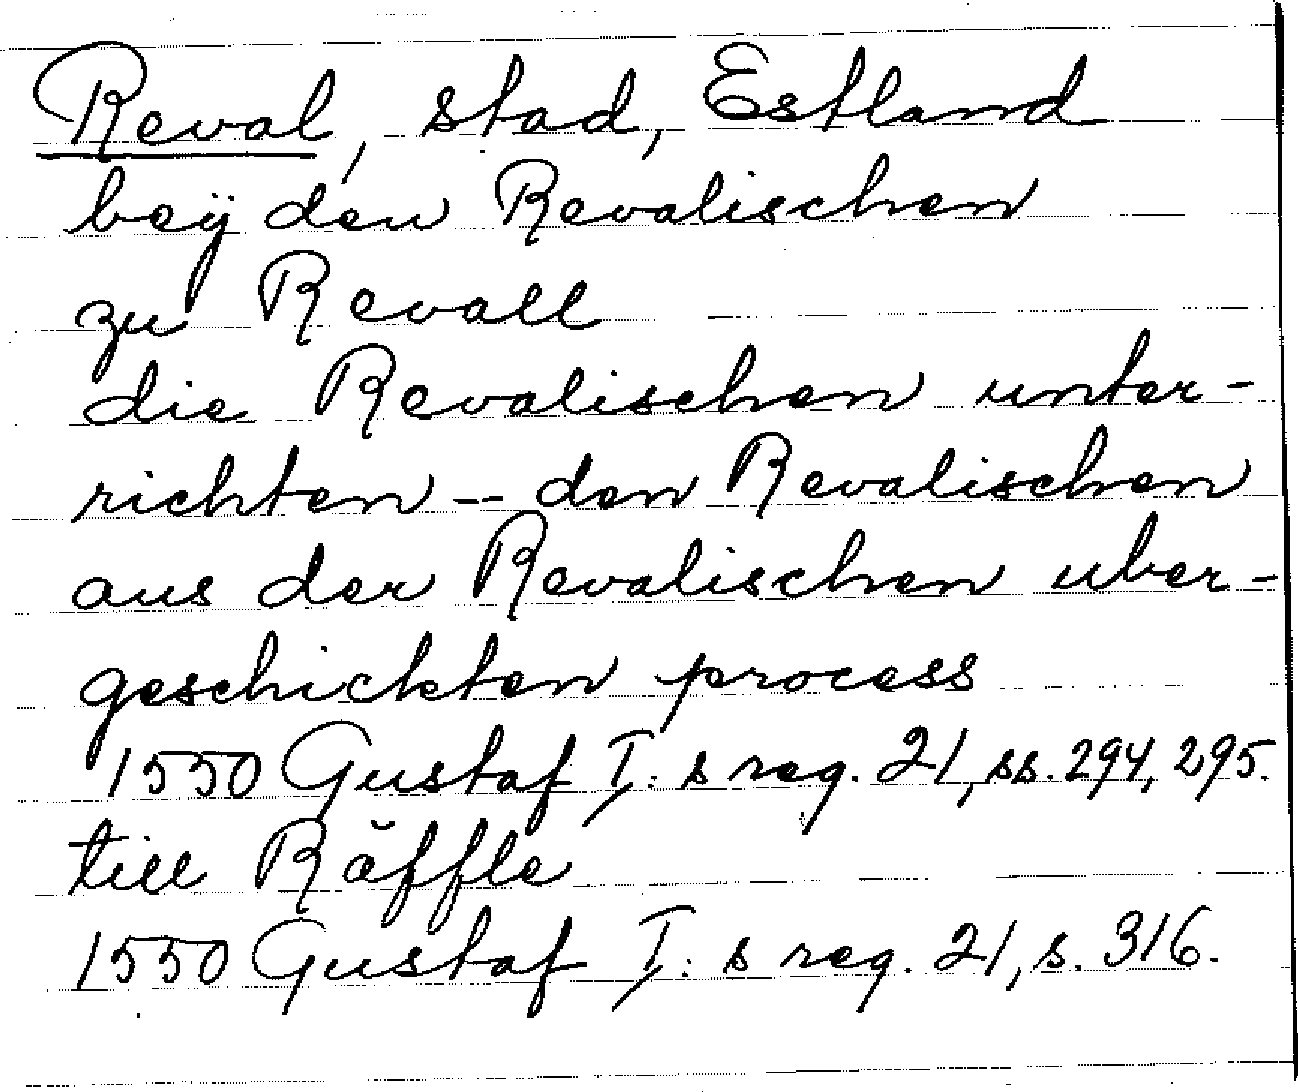 Reval, stad, Estland
beÿ den Revalischen
zu Revall
die Revalischen unter-
richten -- den Revalischen
aus der Revalischen uber-
geschickten process
1550 Gustaf I: s reg. 21, ss. 294, 295.
till Räffle
1550 Gustaf I: s reg. 21, s. 316.